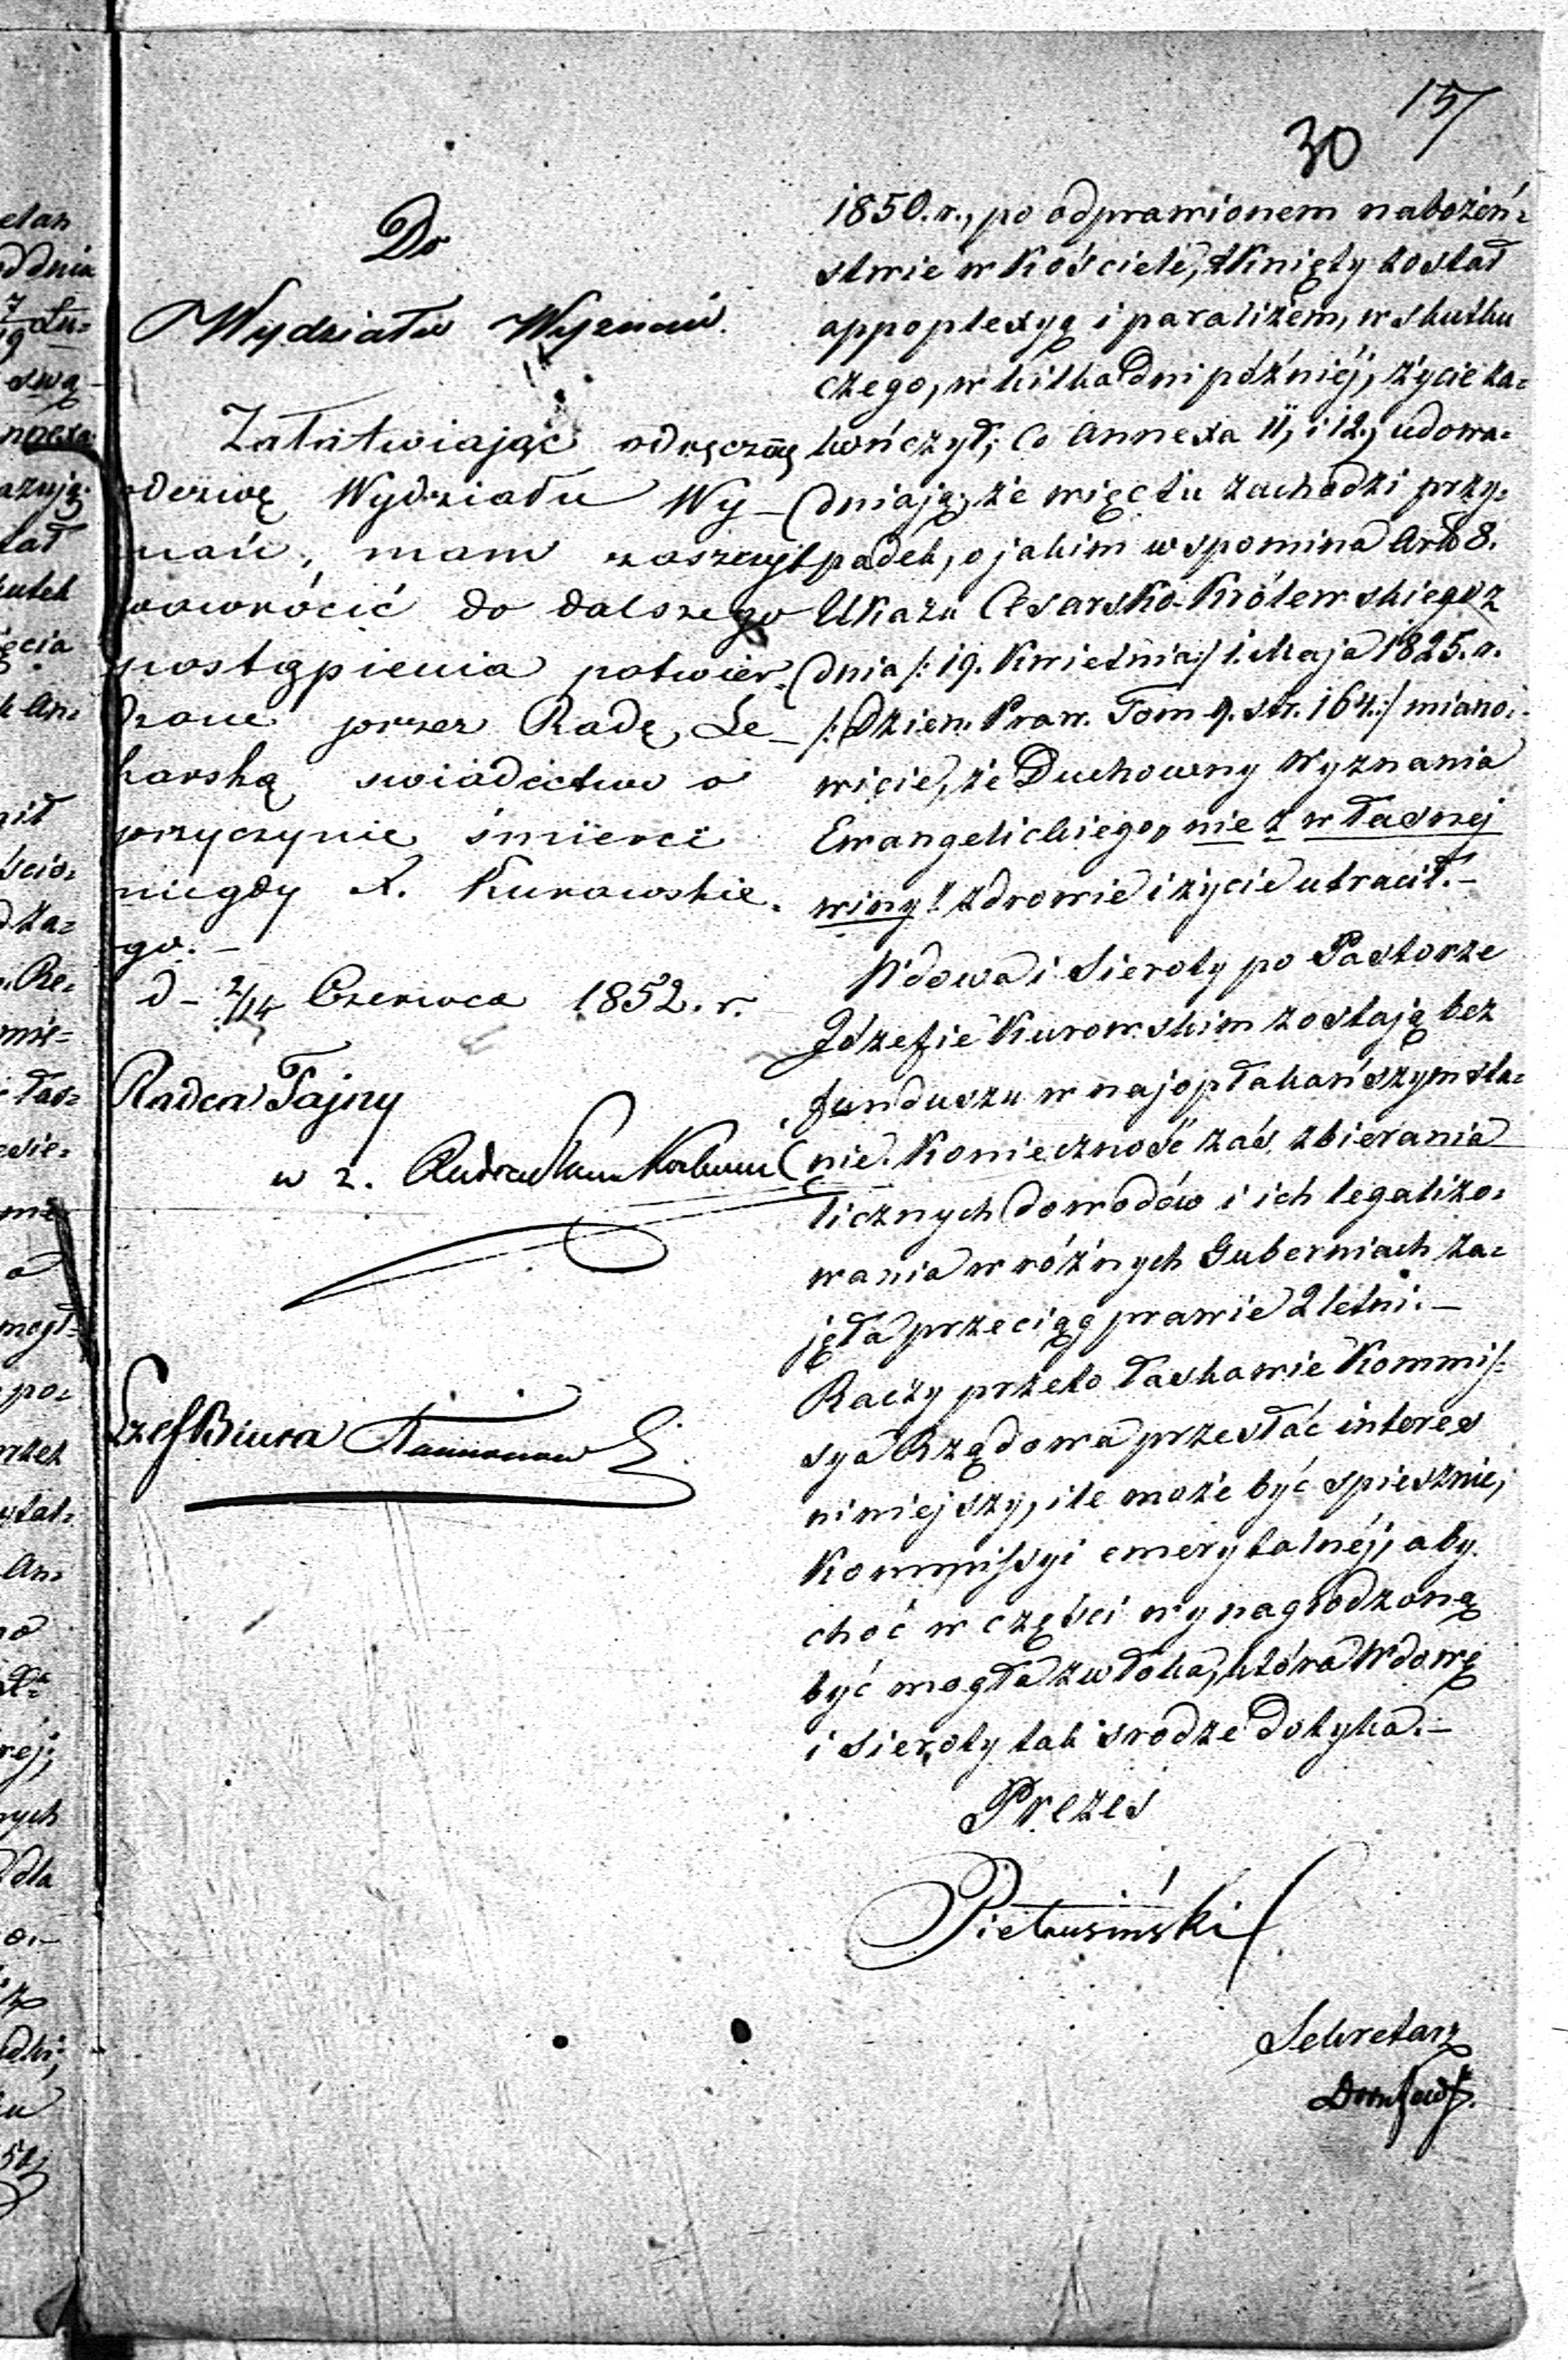 157
30
Do
Wydziału Wyznań.
Załatwiając odręczną
odezwę Wydziału Wy-
znań, mam zaszczyt
powrócić do dalszego
postąpienia potwier-
dzone przez Radę Le-
karską swiadectwo o
przyczynie śmierci
niegdy X. Kurowskie-
go.-
d- 2/14 Czerwca 1852. r.
Radca Tajny
w z.
Szef Biura
1850. r., po odprawionem nabożeń=
stwie w Kościele, tknięty został
appoplexyą i paraliżem, w skutku
czego, w kilka dni później, życie za=
kończył; Co Annexa 11, i 12., udowa=
dniają; że więc tu zachodzi przy=
padek, o jakim wspomina Art: 8.
Ukazu Cesarsko-Królewskiego z
dnia /: 19. Kwietnia:/ 1. Maja 1825. r.
/: Dzien. Praw. Tom 9. str. 164.:/ miano=
wicie, że Duchowny Wyznania
Ewangelickiego, nie z własnej
winy! zdrowie i życie utracił.-
Wdowa i Sieroty po Pastorze
Józefie Kurowskim zostają bez
funduszu w najopłakańszym sta=
nie. Konieczność zaś zbierania
licznych dowodów i ich legalizo=
wania w różnych Guberniach za=
jęła przeciąg prawie 2 letni.-
Raczy przeto łaskawie Kommis=
sya Rządowa przesłać interes
niniejszy, ile może być spiesznie,
Kommissyi emerytalnéj, aby
choć w części wynagrodzoną
być mogła zwłoka, która Wdowę
i Sieroty tak srodze dotyka.-
Prezes
Pietrusiński
Sekretarz